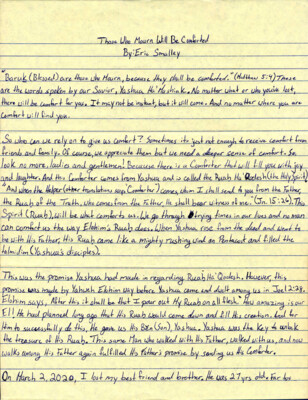 Those Who Mourn Will Be Comforted
By: Eric Smalley
"Baruk (Blessed) are those who Mourn, because they shall be comforted." (Matthew 5:4) These
are the words spoken by our Savior, Yashua, Ha'Mashiak. No matter what or who you've lost,
there will be comfort for you. It may not be instant, but it will come. And no matter where you are
comfort will find you.
So who can we rely on to give us comfort? Sometimes its just not enough to receive comfort from
friends and family. Of course, we appreciate them but we need a deeper sense of comfort. So
look no more, ladies and gentlemen! Because there is a Comforter that will fill you with joy
and laughter. And this Comforter comes from Yashua and is called the Ruah Ha'Qodesh (the Holy Spirit)
"And when the helper (other translations says Comforter) comes, than I shall send to you from the Father,
the Ruah of the Truth, who comes from the Father, he shall bear witness of me." (Jn. 15:26). This
Spirit (Ruah), will be what comforts us. We go through trying times in our lives and no man
can comfort us the way Elohim's Ruah does. When Yashua rise from the dead and went to
be with His Father, His Ruah came like a mighty rushing wind on Pentecost and filled the
talmidim (Yashua's disciples).
This was the promise Yashua had made in regarding Ruah Ha'Qodesh. However, this
promise was made by Yahweh Elohim way before Yashua came and dwelt among us in Joel 2:28.
Elohim says, After this it shall be that I pour out My Ruah on all flesh." How amazing is our
El! He had planned long ago that His Ruah would come down and fill His creation. And for
Him to successfully do this, He gave us His Ben (Son), Yashua. Yashua was the Key to unlock
the treasure of His Ruah. This same Man who walked with His Father, walked with us, and now
walks among His Father again fulfilled His Father's promise by sending us His Comforter.
On March 2, 2020, I lost my best friend and brother. He was 27 yrs old. For her